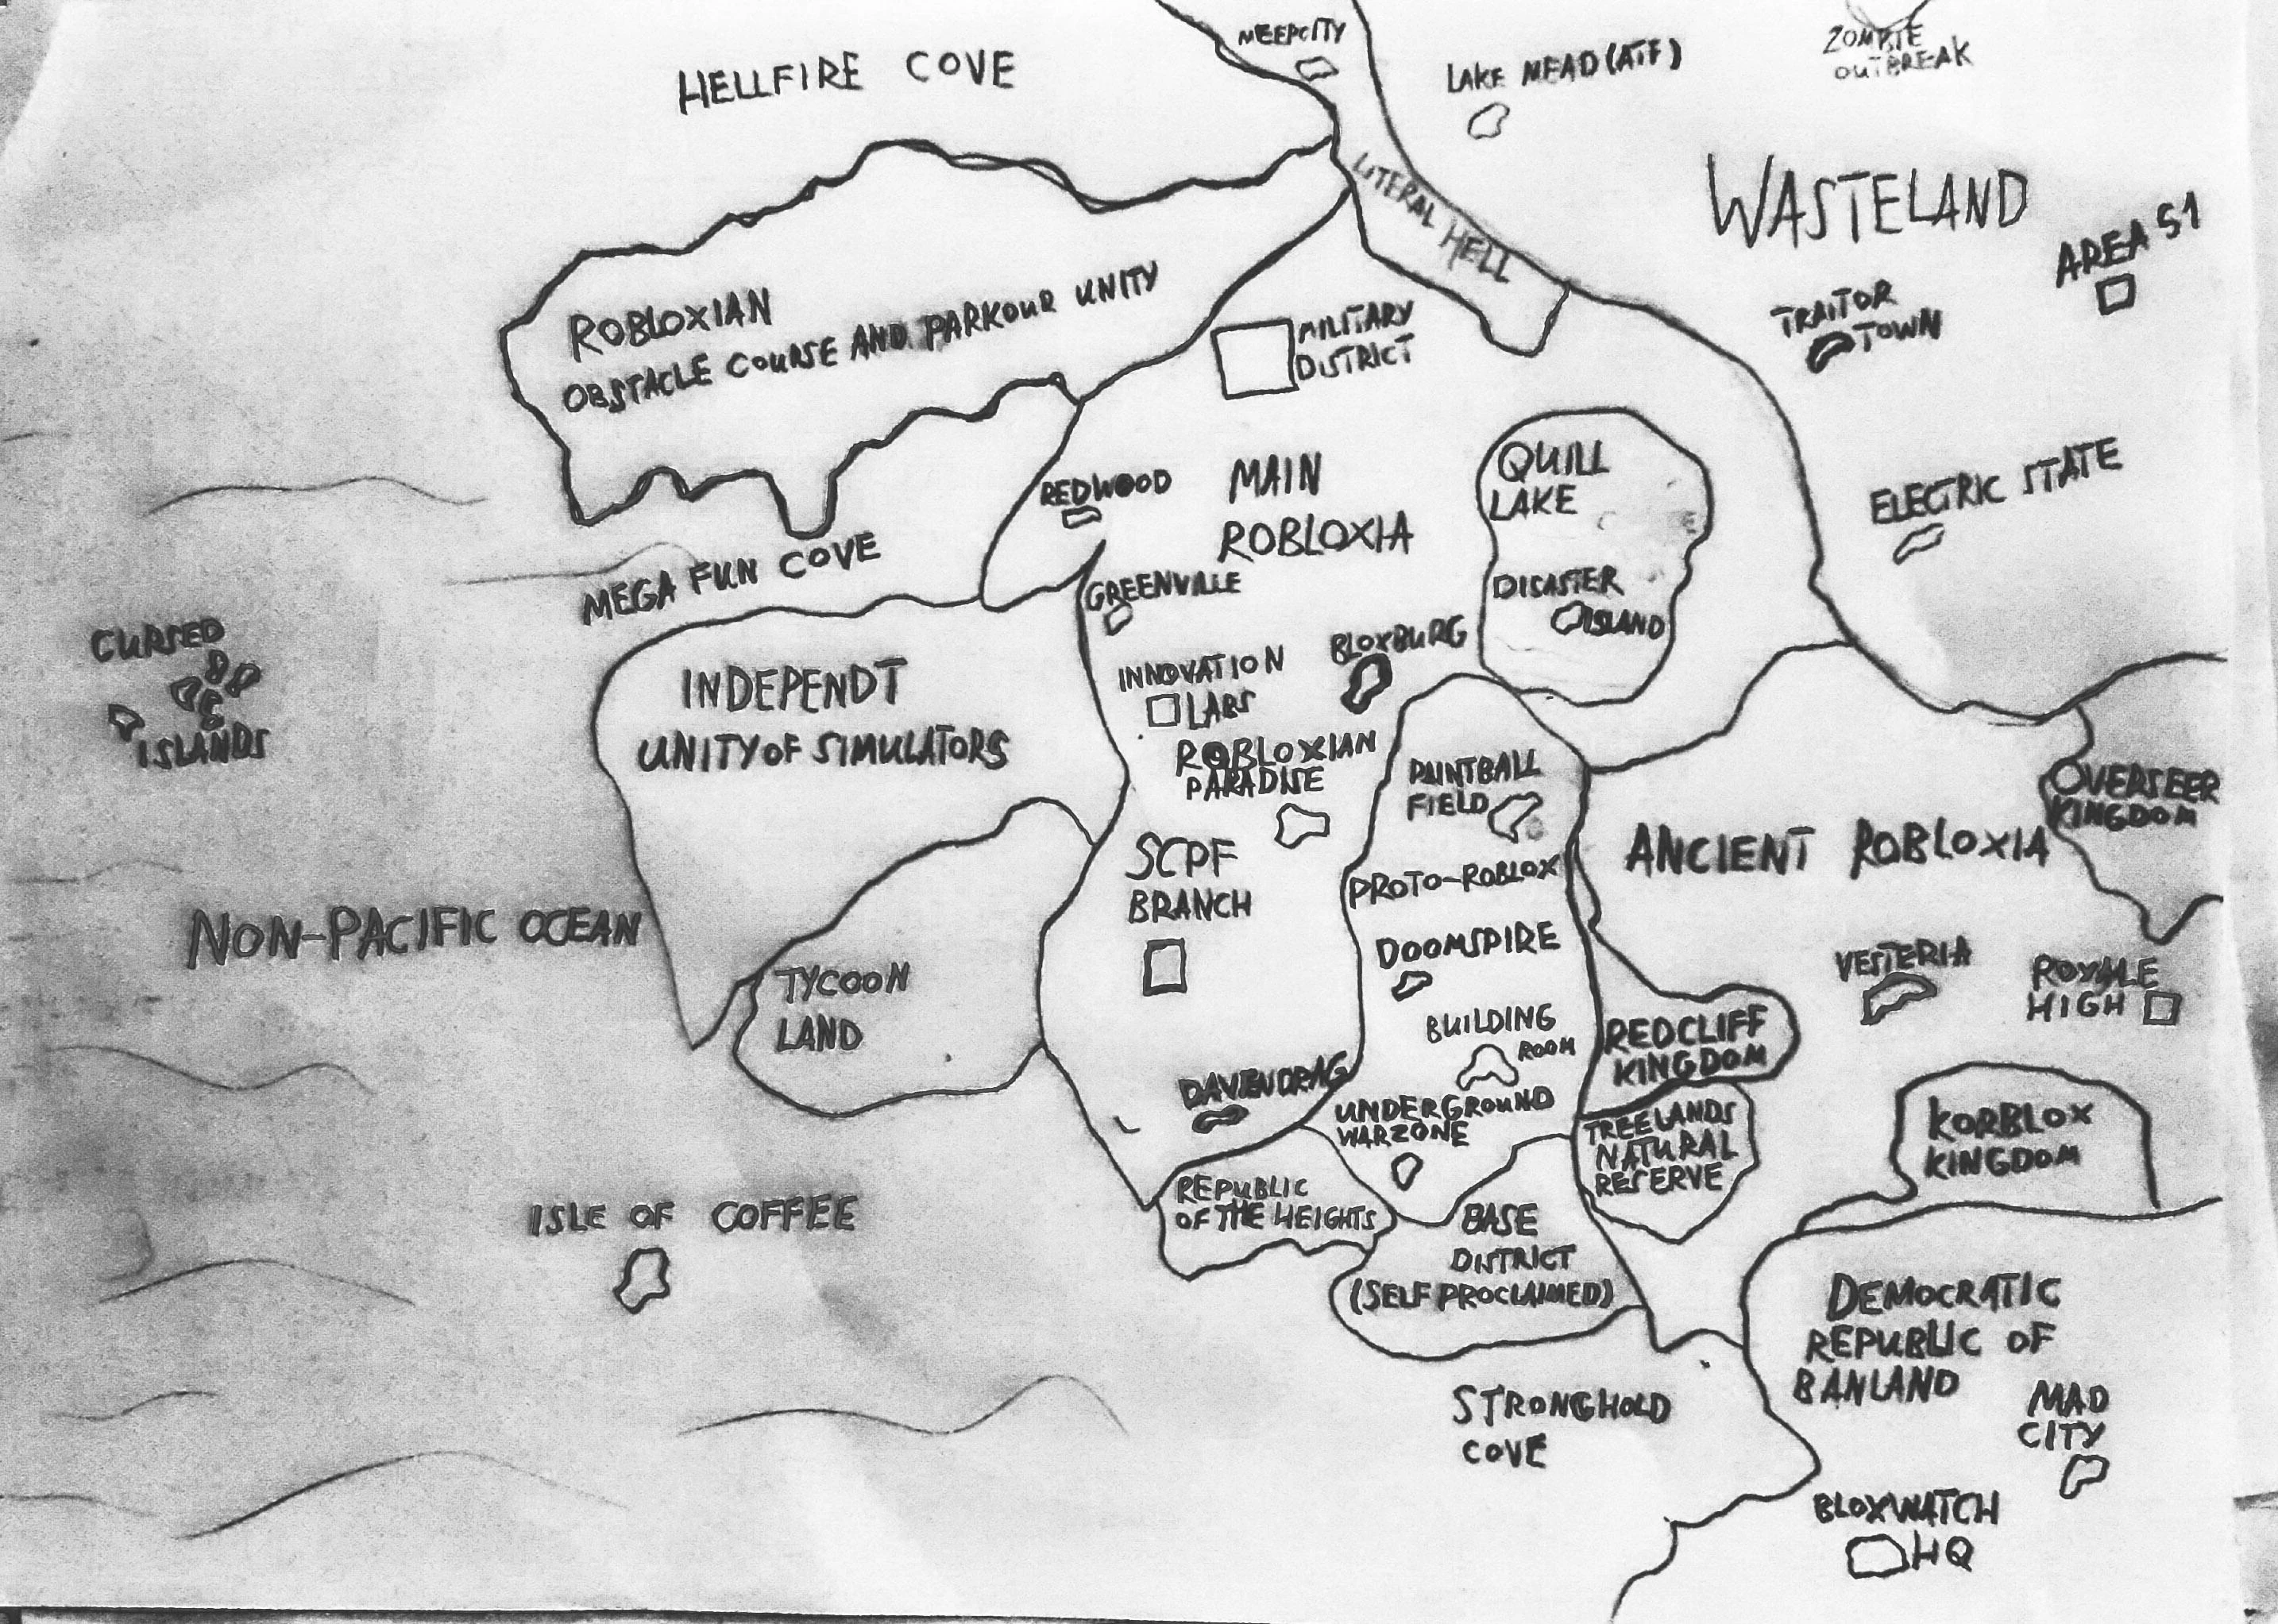 MEEPCITY
HELLFIRE COVE
LAKE MEAD (ATF)
ZOMBIE
OUTBREAK
LITERAL HELL
WASTELAND
AREA 51
TRAITOR
TOWN
ROBLOXIAN
OBSTACLE COURSE AND PARKOUR UNITY
MILITARY
DISTRICT
QUILL
LAKE
REDWOOD
MAIN
ROBLOXIA
ELECTRIC STATE
MEGA FUN COVE
GREENVILLE
DISASTER
ISLAND
CURSED
ISLANDS
INDEPENDT
UNITY OF SIMULATORS
INNOVATION
LABS
BLOXBURG
ROBLOXIAN
PARADISE
PAINTBALL
FIELD
OVERSEER
KINGDOM
SCPF
BRANCH
PROTO-ROBLOX
ANCIENT ROBLOXIA
NON-PACIFIC OCEAN
TYCOON
LAND
DOOMSPIRE
VESTERIA
ROYALE
HIGH
BUILDING
ROOM
REDCLIFF
KINGDOM
UNDERGROUND
WARZONE
TREELANDS
NATURAL
RESERVE
KORBLOX
KINGDOM
ISLE OF COFFEE
REPUBLIC
OF THE HEIGHTS
BASE
DISTRICT
(SELF PROCLAIMED)
DEMOCRATIC
REPUBLIC OF
BANLAND
MAD
CITY
STRONGHOLD
COVE
BLOXWATCH
HQ